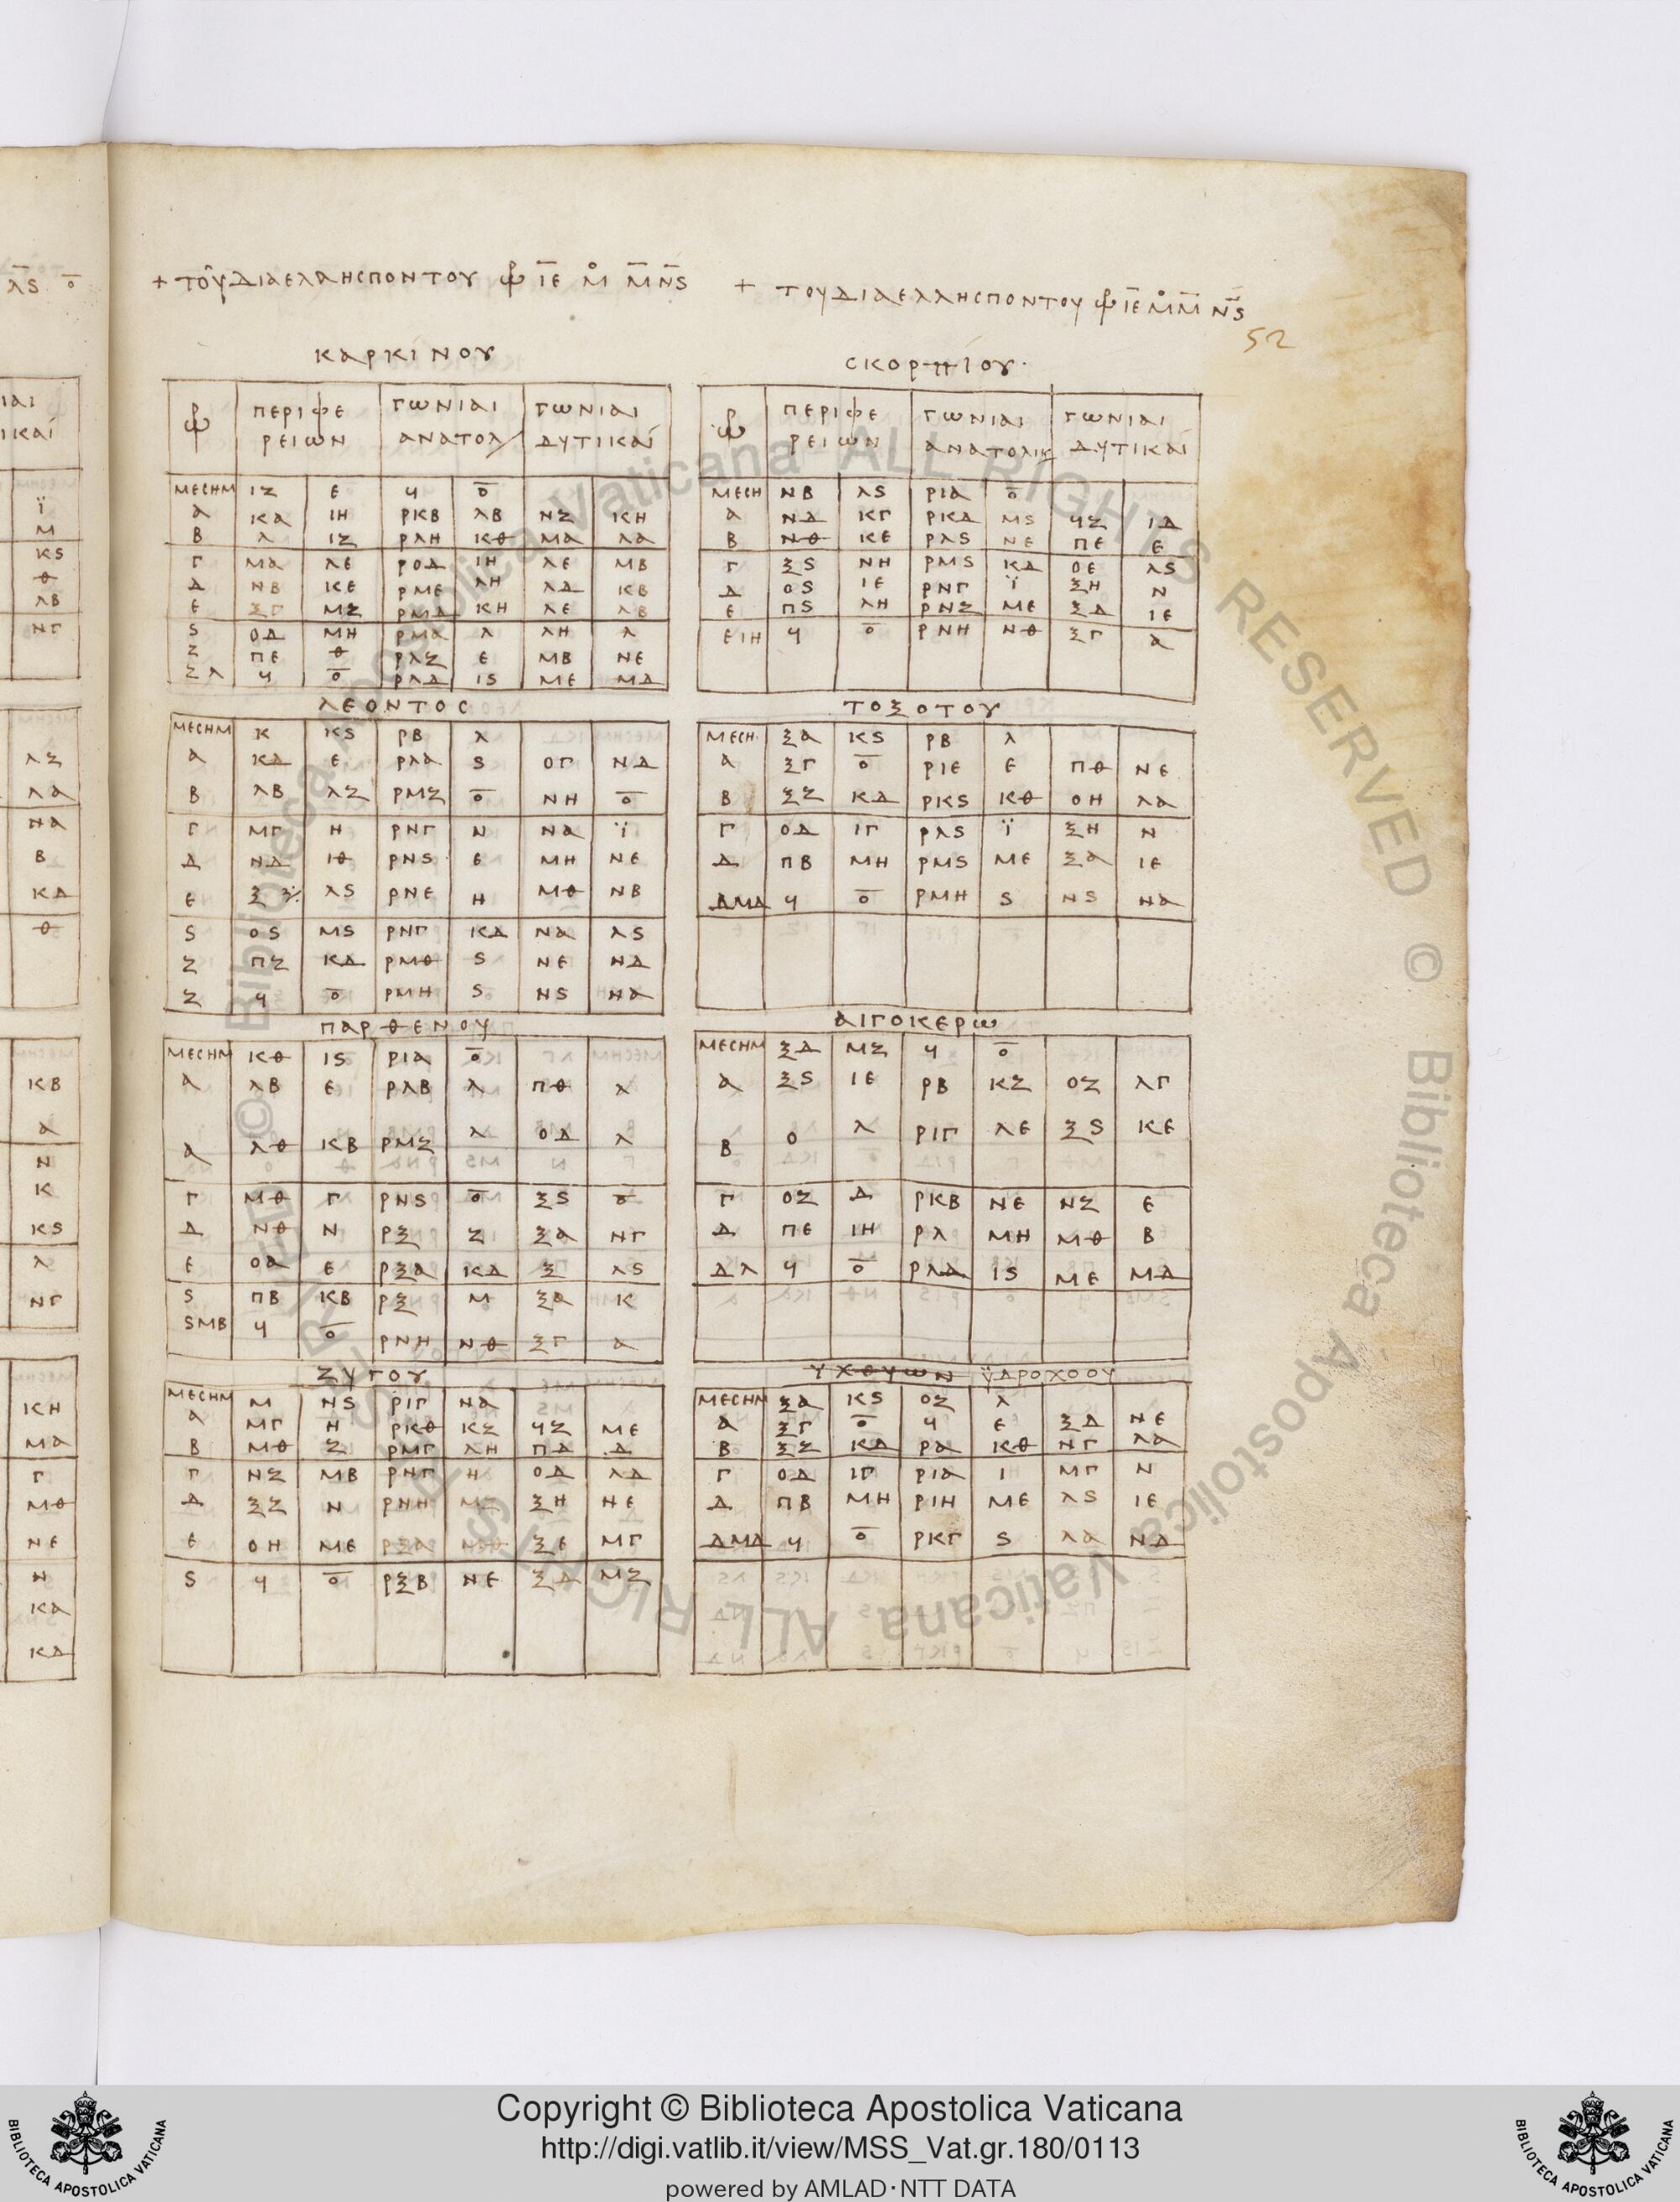 + ΤΟΥ ΔΙΑ ΕΛΛΗΣΠΟΝΤΟΥ ΙΕ Μ ΝS
+ ΤΟΥ ΔΙΑ ΕΛΛΗΣΠΟΝΤΟΥ ΙΕ Μ ΝS
52
ΚΑΡΚΙΝΟΥ
ΠΕΡΙΦΕ ΓΩΝΙΑΙ ΓΩΝΙΑΙ
ΡΕΙΩΝ ΑΝΑΤΟΛ ΔΥΤΙΚΑΙ
ΜΕCΗΜ ΙΖ Ε Ϥ ο
Α ΚΑ ΙΗ ΡΚΒ ΛΒ ΝΖ ΚΗ
Β Λ ΙΖ ΡΛΗ ΚΘ ΜΑ ΛΑ
Γ ΜΑ ΛΕ ΡΟΔ ΙΗ ΛΕ ΜΒ
Δ ΝΒ ΚΕ ΡΜΕ ΛΗ ΛΔ ΚΒ
Ε ΞΓ ΜΖ ΡΜΔ ΚΗ ΛΕ ΛΒ
S ΟΔ ΜΗ ΡΜΑ Λ ΛΗ Λ
Ζ ΠΕ Θ ΡΛΖ Ε ΜΒ ΝΕ
ΖΛ Ϥ ο ΡΛΔ ΙS ΜΕ ΜΔ
ΛΕΟΝΤΟC
ΜΕCΗΜ Κ ΚS ΡΒ Λ
Α ΚΔ Ε ΡΛΑ S ΟΓ ΝΔ
Β ΛΒ ΛΖ ΡΜΖ ο ΝΗ ο
Γ ΜΓ Η ΡΝΓ Ν ΝΑ Ϊ
Δ ΝΔ ΙΘ ΡΝS Ε ΜΗ ΝΕ
Ε Ξ ΛS ΡΝΕ Η ΜΘ ΝΒ
S ΟS ΜS ΡΝΓ ΚΔ ΝΑ ΛS
Ζ ΠΖ ΚΔ ΡΜΘ S ΝΕ ΝΔ
Ζ Ϥ ο ΡΜΗ S ΝS ΝΑ
ΠΑΡΘΕΝΟΥ
ΜΕCΗΜ ΚΘ ΙS ΡΙΑ ο
Α ΛΒ Ε ΡΛΒ Λ ΠΘ Λ
Α ΛΘ ΚΒ ΡΜΖ Λ ΟΔ Λ
Γ ΜΘ Γ ΡΝS ο ΞS ο
Δ ΝΘ Ν ΡΞ Ζ ΞΑ ΝΓ
Ε ΟΑ Ε ΡΞΑ ΚΔ Ξ ΛS
S ΠΒ ΚΒ ΡΞ Μ ΞΑ Κ
SΜΒ Ϥ ο ΡΝΗ ΝΘ ΞΓ Α
ΖΥΓΟΥ
ΜΕCΗΜ Μ ΝS ΡΙΓ ΝΑ
Α ΜΓ Η ΡΚΘ ΚΖ ϤΖ ΜΕ
Β ΜΘ Ζ ΡΜΓ ΛΗ ΠΔ Δ
Γ ΝΖ ΜΒ ΡΝΓ Η ΟΔ ΛΔ
Δ ΞΖ Ν ΡΝΗ ΜΖ ΞΗ ΝΕ
Ε ΟΗ ΜΕ ΡΞΑ ΞΕ ΜΓ
S Ϥ ο ΡΞΒ ΝΕ ΞΔ ΜΖ
CΚΟΡΠΙΟΥ
ΠΕΡΙΦΕ ΓΩΝΙΑΙ ΓΩΝΙΑΙ
ΡΕΙΩΝ ΑΝΑΤΟΛΙΚ ΔΥΤΙΚΑΙ
ΜΕCΗ ΝΒ ΛS ΡΙΑ ο
Α ΝΔ ΚΓ ΡΚΔ ΜS ϤΖ ΙΔ
Β ΝΘ ΚΕ ΡΛS ΝΕ ΠΕ Ε
Γ ΞS ΝΗ ΡΜS ΚΔ ΟΕ ΛS
Δ ΟS ΙΕ ΡΝΓ Ϊ ΞΗ Ν
Ε ΠS ΛΗ ΡΝΖ ΜΕ ΞΔ ΙΕ
ΕΙΗ Ϥ ο ΡΝΗ ΝΘ ΞΓ Α
ΤΟΞΟΤΟΥ
ΜΕCΗ ΞΑ ΚS ΡΒ Λ
Α ΞΓ ο ΡΙΕ Ε ΠΘ ΝΕ
Β ΞΖ ΚΔ ΡΚS ΚΘ ΟΗ ΛΑ
Γ ΟΔ ΙΓ ΡΛS Ϊ ΞΗ Ν
Δ ΠΒ ΜΗ ΡΜS ΜΕ ΞΑ ΙΕ
ΔΜΔ Ϥ ο ΡΜΗ S ΝS ΝΑ
ΑΙΓΟΚΕΡΩ
ΜΕCΗΜ ΞΔ ΜΖ Ϥ ο
Α ΞS ΙΕ ΡΒ ΚΖ ΟΖ ΛΓ
Β Ο Λ ΡΙΓ ΛΕ ΞS ΚΕ
Γ ΟΖ Δ ΡΚΒ ΝΕ ΝΖ Ε
Δ ΠΕ ΙΗ ΡΛ ΜΗ ΜΘ Β
ΔΛ Ϥ ο ΡΛΔ ΙS ΜΕ ΜΔ
ΥΧΘΥΩΝ ΫΔΡΟΧΟΟΥ
ΜΕCΗΜ ΞΑ ΚS ΟΖ Λ
Α ΞΓ ο Ϥ Ε ΞΔ ΝΕ
Β ΞΖ ΚΔ ΡΑ ΚΘ ΝΓ ΛΑ
Γ ΟΔ ΙΓ ΡΙΑ Ι ΜΓ Ν
Δ ΠΒ ΜΗ ΡΙΗ ΜΕ ΛS ΙΕ
ΔΜΔ Ϥ ο ΡΚΓ S ΛΑ ΝΔ
Copyright © Biblioteca Apostolica Vaticana
http://digi.vatlib.it/view/MSS_Vat.gr.180/0113
powered by AMLAD·NTT DATA
BIBLIOTECA APOSTOLICA VATICANA
BIBLIOTECA APOSTOLICA VATICANA
© Biblioteca Apostolica Vaticana ALL RIGHTS RESERVED
© Biblioteca Apostolica Vaticana ALL RIGHTS RESERVED